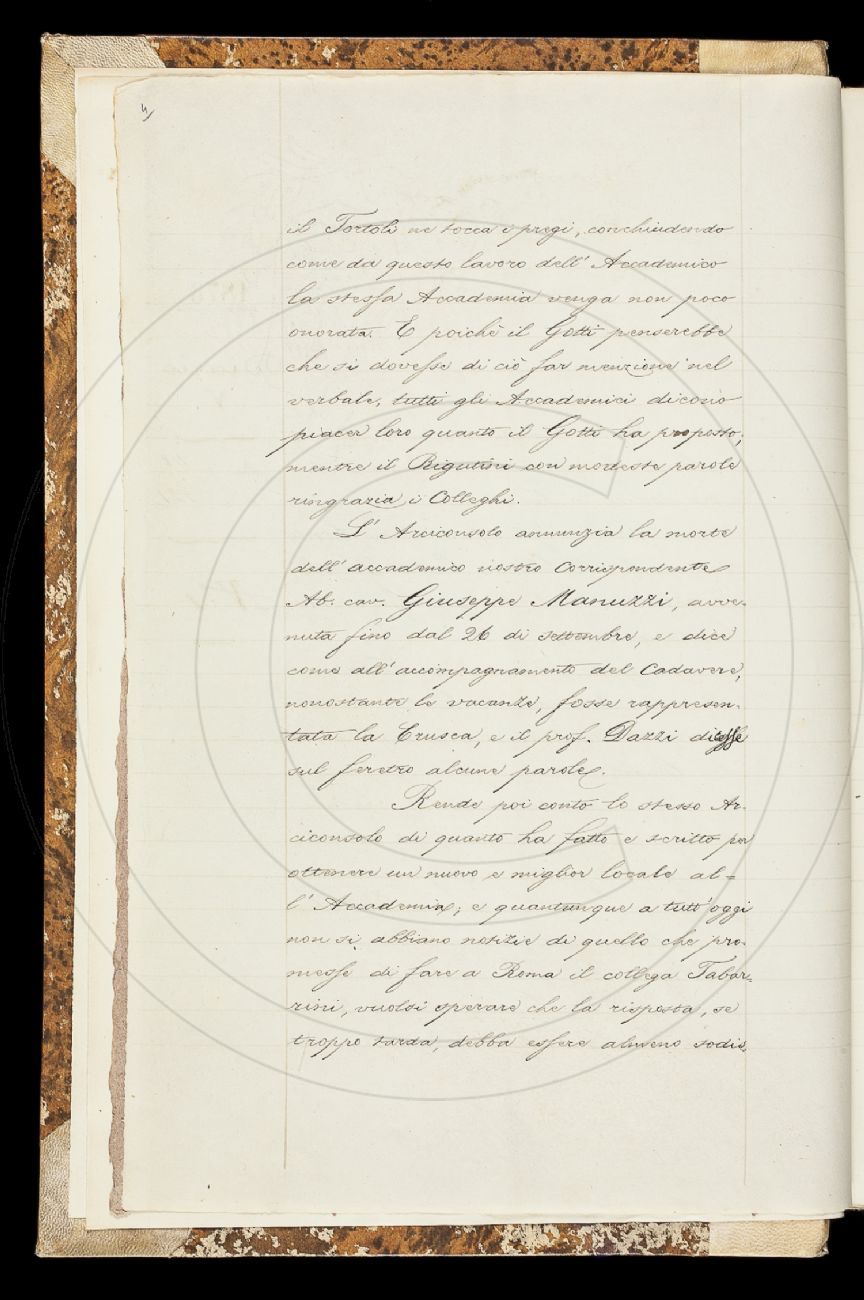 4
il Tortoli ne tocca i pregi, conchiudendo
come da questo lavoro dell' Accademico
la stessa Accademia venga non poco
onorata. E poichè il Gotti penserebbe
che si dovesse di ciò far menzione nel
verbale, tutti gli Accademici dicono
piacer loro quanto il Gotti ha proposto,
mentre il Rigutini con modeste parole
ringrazia i Colleghi.
L' Arciconsolo annunzia la morte
dell' accademico nostro Corrispondente
Ab. cav. Giuseppe Manuzzi, avve-
nuta fino dal 26 di settembre, e dice
come all' accompagnamento del Cadavere,
nonostante le vacanze, fosse rappresen-
tata la Crusca, e il prof. Dazzi dicesse
sul feretro alcune parole.
Rende poi conto lo stesso Ar-
ciconsolo di quanto ha fatto e scritto per
ottenere un nuovo e miglior locale al=
l' Accademia; e quantunque a tutt' oggi
non si abbiano notizie di quello che pro-
messe di fare a Roma il collega Tabar-
rini, vuolsi sperare che la risposta, se
troppo tarda, debba essere almeno sodis-